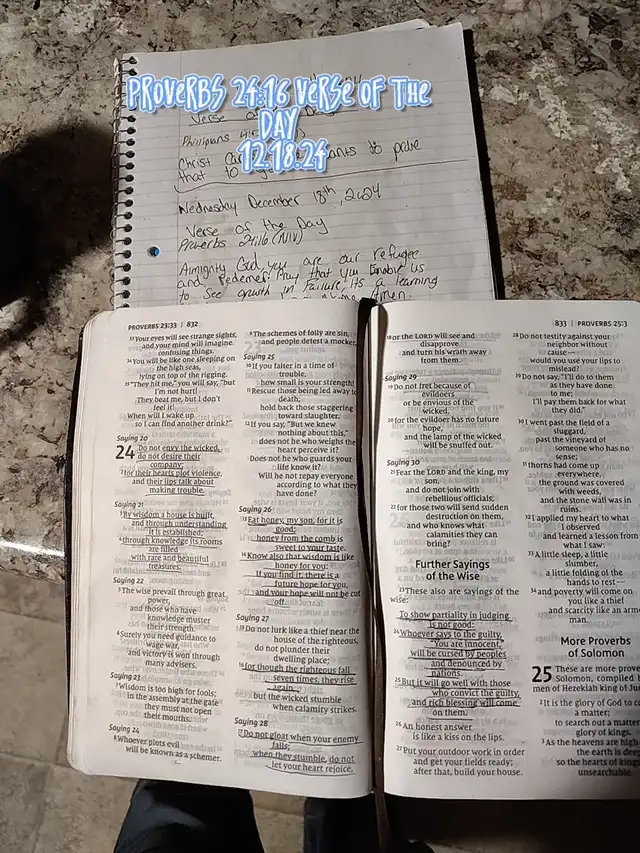 PROVERBS 24:16 VERSE OF THE
DAY
12.18.24
Verse of
Philippians
Christ
that to
Wednesday December 18th, 2024
Verse of the Day
Proverbs 24:16 (NIV)
Almighty God you are our refugee
and Redeemer. Pray that you Enable us
to see growth in Failure, its a learning
PROVERBS 23:33 | 832
33 Your eyes will see strange sights,
and your mind will imagine
confusing things.
34 You will be like one sleeping on
the high seas,
lying on top of the rigging.
35 "They hit me," you will say, "but
I'm not hurt!
They beat me, but I don't
feel it!
When will I wake up
so I can find another drink?"
Saying 20
24 Do not envy the wicked,
do not desire their
company;
2 for their hearts plot violence,
and their lips talk about
making trouble.
Saying 21
3 By wisdom a house is built,
and through understanding
it is established;
4 through knowledge its rooms
are filled
with rare and beautiful
treasures.
Saying 22
5 The wise prevail through great
power,
and those who have
knowledge muster
their strength.
6 Surely you need guidance to
wage war,
and victory is won through
many advisers.
Saying 23
7 Wisdom is too high for fools;
in the assembly at the gate
they must not open
their mouths.
Saying 24
8 Whoever plots evil
will be known as a schemer.
9 The schemes of folly are sin,
and people detest a mocker.
Saying 25
10 If you falter in a time of
trouble,
how small is your strength!
11 Rescue those being led away to
death;
hold back those staggering
toward slaughter.
12 If you say, "But we knew
nothing about this,"
does not he who weighs the
heart perceive it?
Does not he who guards your
life know it?
Will he not repay everyone
according to what they
have done?
Saying 26
13 Eat honey, my son, for it is
good;
honey from the comb is
sweet to your taste.
14 Know also that wisdom is like
honey for you:
If you find it, there is a
future hope for you,
and your hope will not be cut
off.
Saying 27
15 Do not lurk like a thief near the
house of the righteous,
do not plunder their
dwelling place;
16 for though the righteous fall
seven times, they rise
again,
but the wicked stumble
when calamity strikes.
Saying 28
17 Do not gloat when your enemy
falls;
when they stumble, do not
let your heart rejoice,
833 | PROVERBS 25:3
18 or the LORD will see and
disapprove
and turn his wrath away
from them.
Saying 29
19 Do not fret because of
evildoers
or be envious of the
wicked,
20 for the evildoer has no future
hope,
and the lamp of the wicked
will be snuffed out.
Saying 30
21 Fear the LORD and the king, my
son,
and do not join with
rebellious officials,
22 for those two will send sudden
destruction on them,
and who knows what
calamities they can
bring?
Further Sayings
of the Wise
23 These also are sayings of the
wise:
To show partiality in judging
is not good:
24 Whoever says to the guilty,
"You are innocent,"
will be cursed by peoples
and denounced by
nations.
25 But it will go well with those
who convict the guilty,
and rich blessing will come
on them.
26 An honest answer
is like a kiss on the lips.
27 Put your outdoor work in order
and get your fields ready;
after that, build your house.
28 Do not testify against your
neighbor without
cause—
would you use your lips to
mislead?
29 Do not say, "I'll do to them
as they have done
to me;
I'll pay them back for what
they did."
30 I went past the field of a
sluggard,
past the vineyard of
someone who has no
sense;
31 thorns had come up
everywhere,
the ground was covered
with weeds,
and the stone wall was in
ruins.
32 I applied my heart to what
I observed
and learned a lesson from
what I saw:
33 A little sleep, a little
slumber,
a little folding of the
hands to rest—
34 and poverty will come on
you like a thief
and scarcity like an arme
man.
More Proverbs
of Solomon
25 These are more prove
Solomon, compiled b
men of Hezekiah king of Ju
2 It is the glory of God to c
a matter;
to search out a matter
glory of kings.
3 As the heavens are high
the earth is deep
so the hearts of kings
unsearchable.